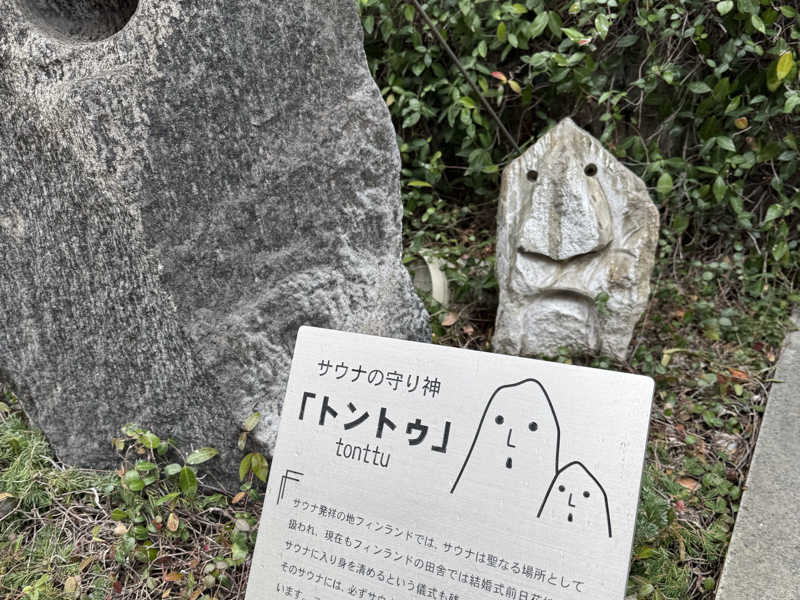 サウナの守り神
「トントゥ」
tonttu
サウナ発祥の地フィンランドでは、サウナは聖なる場所として
扱われ、現在もフィンランドの田舎では結婚式前日花
サウナに入り身を清めるという儀式も
そのサウナには、必ずサウ
います。